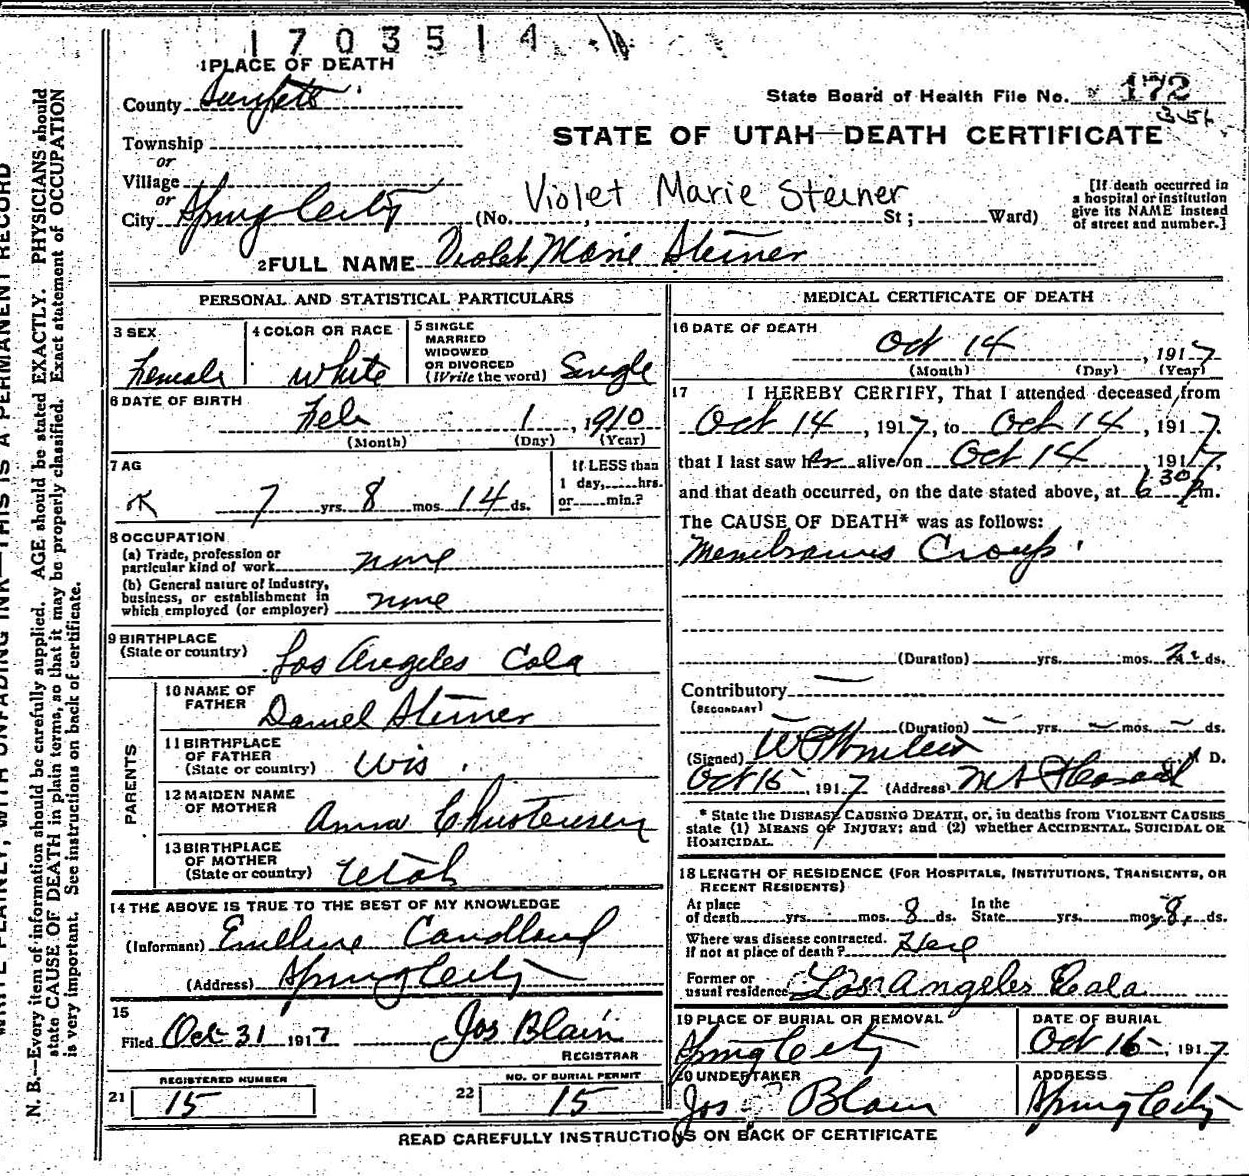 1703514
1 PLACE OF DEATH
County Sanpete
State Board of Health File No. 172
351
Township
or
Village
or
City Spring City
STATE OF UTAH—DEATH CERTIFICATE
Violet Marie Steiner
(No. , St; Ward)
[If death occurred in
a hospital or institution
give its NAME instead
of street and number.]
2 FULL NAME Violet Marie Steiner
PERSONAL AND STATISTICAL PARTICULARS
3 SEX
Female
4 COLOR OR RACE
White
5 SINGLE
MARRIED
WIDOWED
OR DIVORCED
(Write the word) Single
6 DATE OF BIRTH
Feb 1, 1910
(Month) (Day) (Year)
7 AG
7 yrs. 8 mos. 14 ds.
If LESS than
1 day, hrs.
or min.?
8 OCCUPATION
(a) Trade, profession or
particular kind of work none
(b) General nature of Industry,
business, or establishment in
which employed (or employer) none
9 BIRTHPLACE
(State or country) Los Angeles Cala
PARENTS
10 NAME OF
FATHER Daniel Steiner
11 BIRTHPLACE
OF FATHER
(State or country) Wis.
12 MAIDEN NAME
OF MOTHER Anna Christensen
13 BIRTHPLACE
OF MOTHER
(State or country) Utah
14 THE ABOVE IS TRUE TO THE BEST OF MY KNOWLEDGE
(Informant) Emeline Candland
(Address) Spring City
15
Filed Oct 31 1917 Jos Blain
REGISTRAR
21 REGISTERED NUMBER
15
22 NO. OF BURIAL PERMIT
15
MEDICAL CERTIFICATE OF DEATH
16 DATE OF DEATH
Oct 14, 1917
(Month) (Day) (Year)
17 I HEREBY CERTIFY, That I attended deceased from
Oct 14, 1917, to Oct 14, 1917.
that I last saw her alive on Oct 14 1917,
and that death occurred, on the date stated above, at 6 30 Pm.
The CAUSE OF DEATH* was as follows:
Membranus Croup.
(Duration) yrs. mos. 2 ds.
Contributory —
(SECONDARY)
(Duration) — yrs. — mos. — ds.
(Signed) D.
Oct 15, 1917 (Address) Mt Pleasant
* State the DISEASE CAUSING DEATH, or, in deaths from VIOLENT CAUSES
state (1) MEANS OF INJURY; and (2) whether ACCIDENTAL, SUICIDAL OR
HOMICIDAL.
18 LENGTH OF RESIDENCE (FOR HOSPITALS, INSTITUTIONS, TRANSIENTS, OR
RECENT RESIDENTS)
At place
of death yrs. mos. 8 ds.
In the
State yrs. mos. 8 ds.
Where was disease contracted,
if not at place of death? Here
Former or
usual residence Los Angeles Cala
19 PLACE OF BURIAL OR REMOVAL
Spring City
DATE OF BURIAL
Oct 16, 1917
20 UNDERTAKER
Jos Blain
ADDRESS
Spring City
READ CAREFULLY INSTRUCTIONS ON BACK OF CERTIFICATE
WRITE PLAINLY, WITH UNFADING INK—THIS IS A PERMANENT RECORD
N. B.—Every item of information should be carefully supplied. AGE should be stated EXACTLY. PHYSICIANS should
state CAUSE OF DEATH in plain terms, so that it may be properly classified. Exact statement of OCCUPATION
is very important. See instructions on back of certificate.